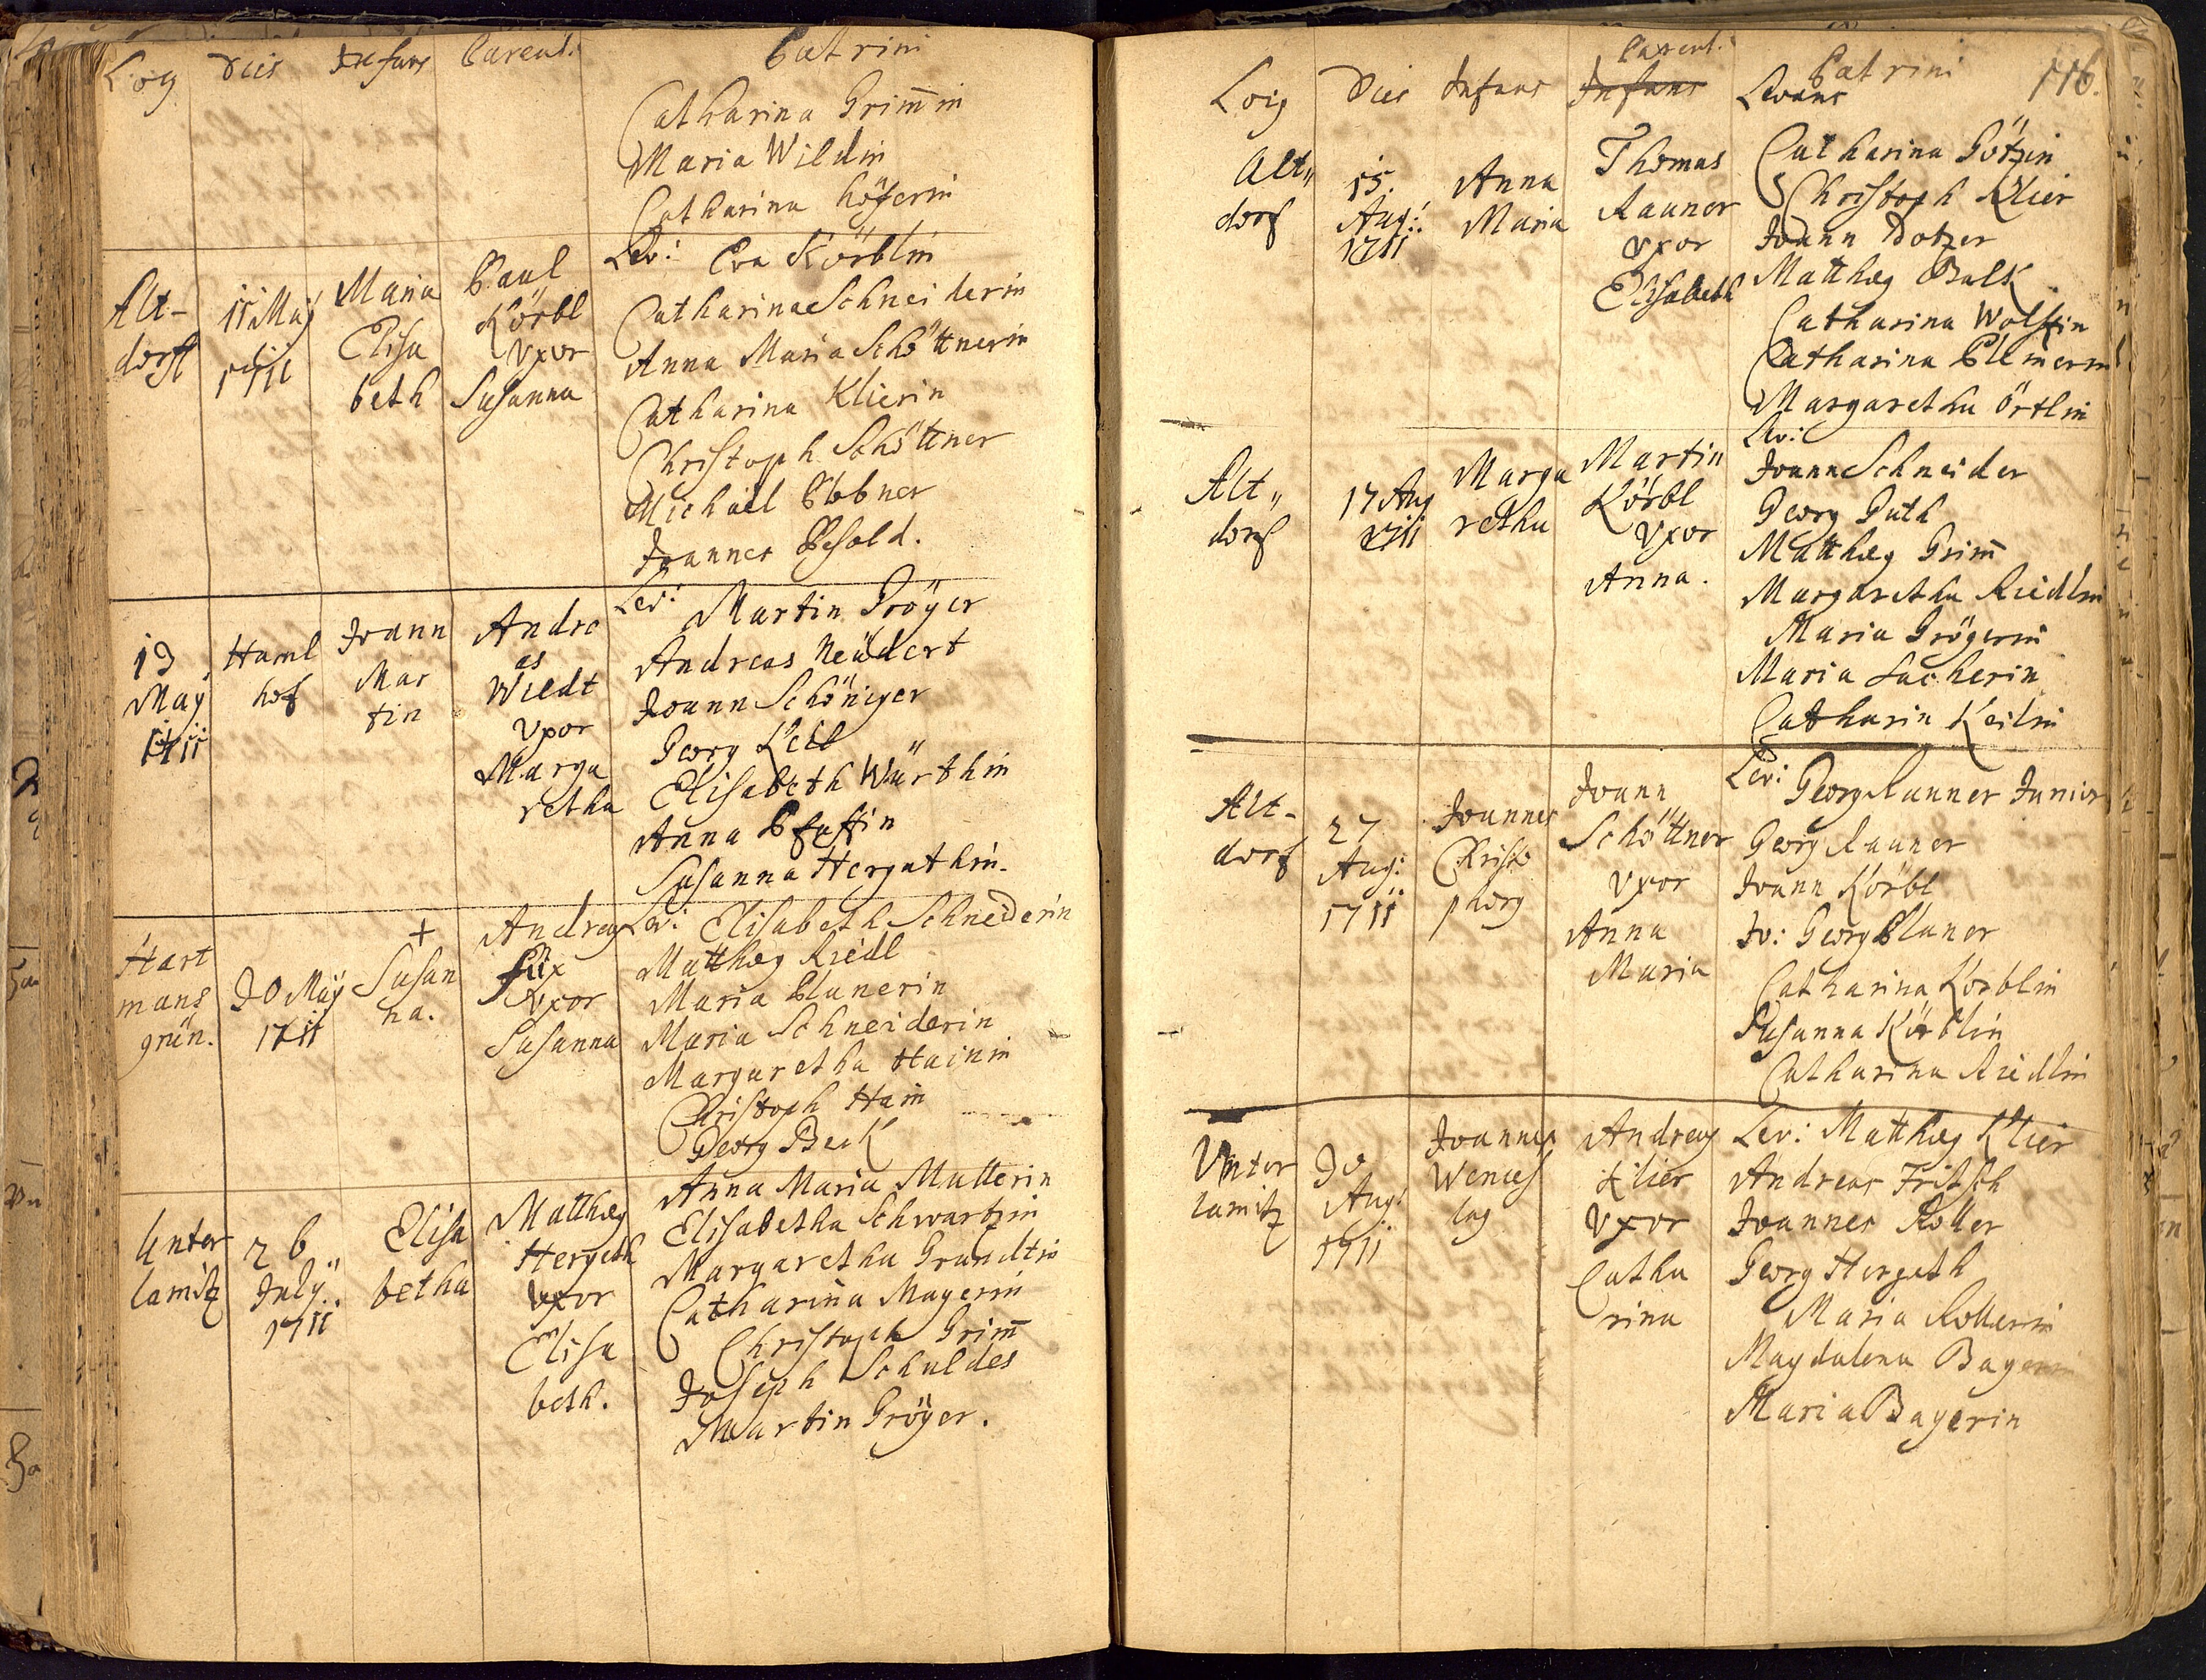 Log dies Infans Parent: Patrini
Catharina Grim̄in
Maria Wildin
Catharina Höferin
Alt-
dorff
11 Maÿ
1711
Maria
Elisa
beth
Paul
Körbl
Vxor
Susanna
Lev: Eva Körblin
Catharina Schneiderin
Anna Maria Schöttnerin
Catharina Klierin
Christoph Schöttner
Michäel Ebner
Joannes Pesold.
13
May
1711
Haml
hof
Joann
Mar
tin
Andre
as
Wildt
Vxor
Marga
retha
Lev: Martin Gröger
Andreas Neüdert
Joann Schöniger
Georg Keil
Elisabeth Würthin
Anna Pfaffin
Susanna Hergathin.
Hart
mans
grün.
30 Maÿ
1711
+
Susan
na.
Andreas
Vxor
Susanna
Lev: Elisabeth Schneiderin
Matthæg Riedl
Maria Planerin
Maria Schneiderin
Margaretha Hainin
Christoph Hain
Georg Beck
Unter
lamitz
26
Julÿ
1711
Elisa
betha
Matthæg
Hergeth
Vxor
Elisa
beth.
Anna Maria Mullerin
Elisabetha Schwartzin
Margaretha Grundtin
Catharina Mayerin
Christoph Grim̄
Joseph Schuldes
Martin Gröger.
116.
Loig Dies Infans Infans Parent: Patrini
Levans
Alt„
dorf
15.
Aug:
1711
Anna
Maria
Thomas
Rauner
Vxor
Elisabeth
Catharina Götzin
Christoph Klier
Joann Dotzer
Matthæg Balk
Catharina Wolffin
Catharina Ellmerin
Margaretha Örtlin
Alt„
dorf
17 Aug
1711
Marga
retha
Martin
Körbl
Vxor
Anna.
Lev:
Joann Schneider
Georg Guth
Matthæg Grim̄
Margaretha Riedlin
Maria Grögerin
Maria Lacherin
Catharin Keilin
Alt-
dorf
27
Aug:
1711
Joannes
Christo
phorg
Joann
Schöttner
Vxor
Anna
Maria
Lev: Georg Rauner Junior
Georg Rauner
Joann Körbl
Jo: Georg Planer
Catharina Körblin
Susanna Körblin
Catharina Riedlin
Vnter
lamitz
30
Aug:
1711
Joannes
Wences
lag
Andreas
Klier
Vxor
Catha
rina
Lev: Matthæg Klier
Andreas Fritsch
Joannes Roller
Georg Hergeth
Maria Rollerin
Magdalena Bayerin
Maria Bayerin